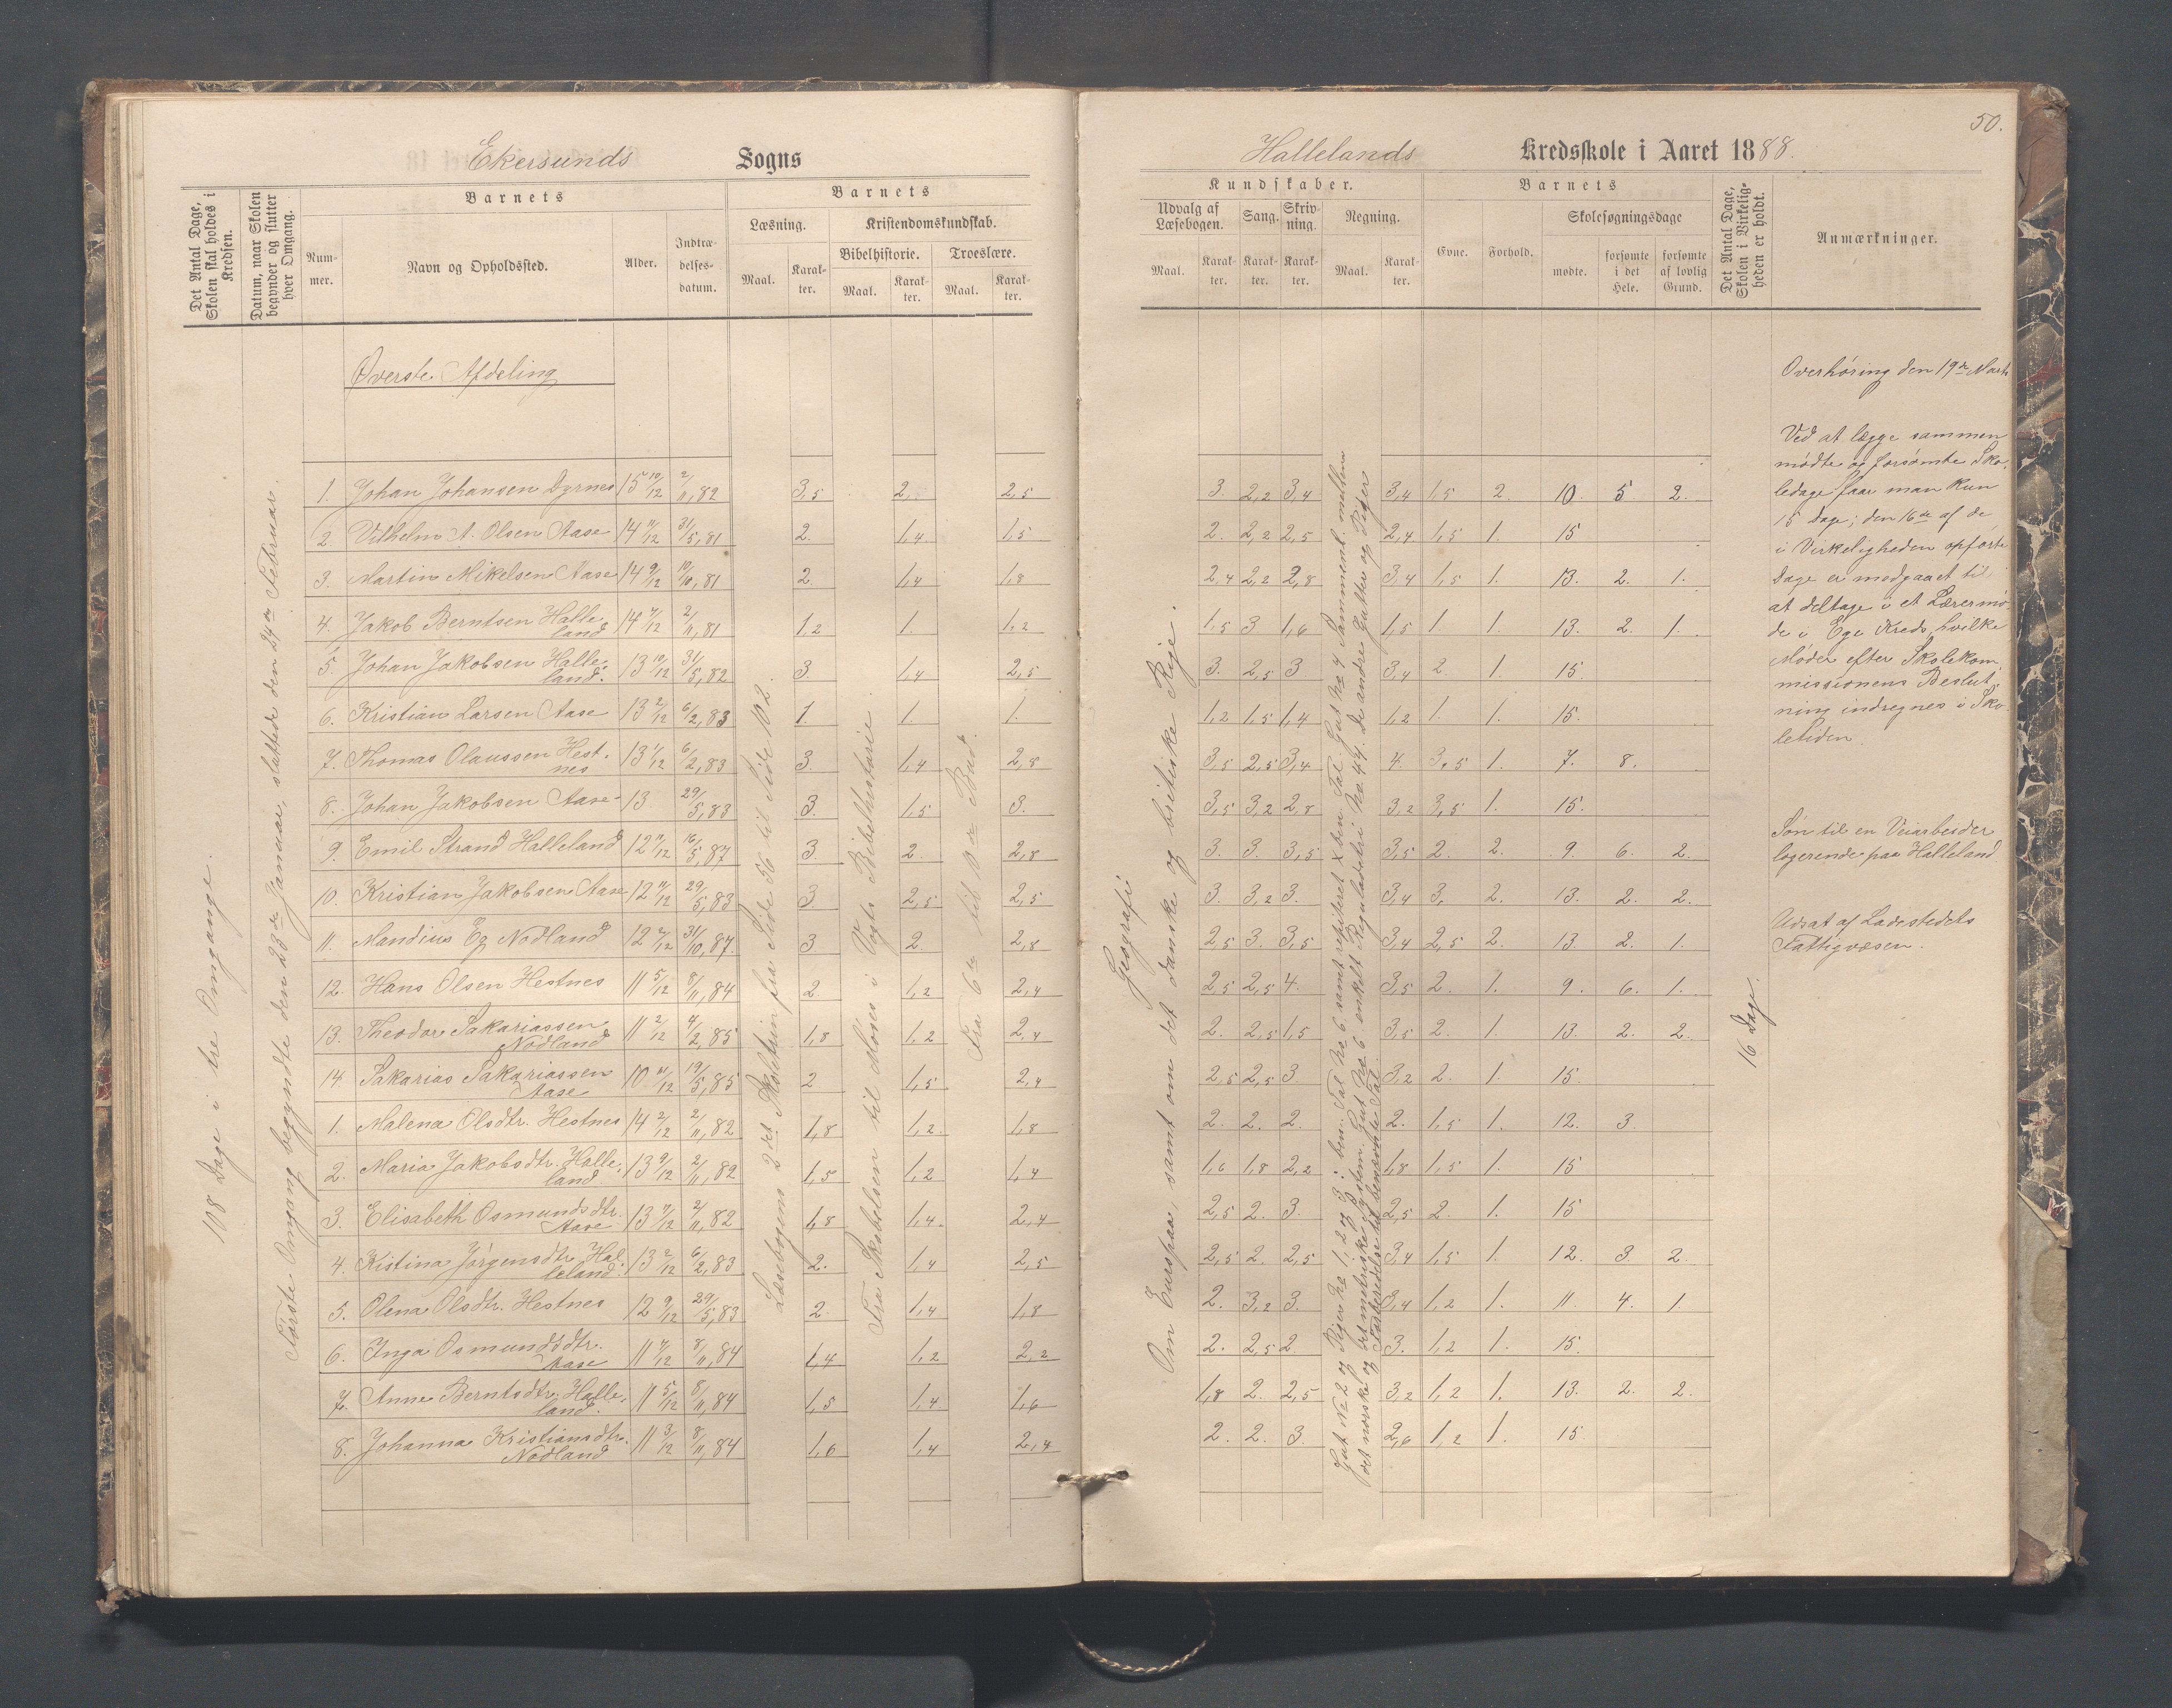 50.
Ekersunds Sogns
Hallelands Kredsskole i Aaret 1888.
Det Antal Dage, Skolen skal holdes i Kredsen.
Datum, naar Skolen begynder og slutter hver Omgang.
Barnets
Nummer.
Navn og Opholdssted.
Alder.
Indtrædelsesdatum.
Barnets
Læsning.
Maal.
Karakter.
Kristendomskundskab.
Bibelhistorie.
Troeslære.
Maal.
Karakter.
Maal.
Karakter.
Kundskaber.
Udvalg af Læsebogen.
Sang.
Skrivning.
Regning.
Maal.
Karakter.
Karakter.
Karakter.
Maal.
Karakter.
Barnets
Evne.
Forhold.
Skolesøgningsdage
mødte.
forsømte i det Hele.
forsømte af lovlig Grund.
Det Antal Dage, Skolen i Virkeligheden er holdt.
Anmærkninger.
Øverste Afdeling
108 Dage i tre Omgange.
Første Omgang begyndte den 23de Januar, sluttede den 24de Februar.
Læsebogens 2det Skoletrin fra Side 56 til Side 102.
Fra Skabelsen til Moses i Vogts Bibelhistorie.
Fra 6te til 10de Bud.
Geografi
Om Europa, samt om det danske og britiske Rige.
16 Dage.
1. Johan Johansen Dyrnes 15 10/12 2/11,82 3,5 2. 2,5 3. 2,2 3,4 3,4 1,5 2. 10. 5 2.
2 Vilhelm A. Olsen Aase 14 11/12 31/5,81 2. 1,4. 1,5 2. 2,2 2,5 2,4 1,5 1. 15
3. Martin Mikelsen Aase 14 9/12 10/10,81 2. 1,4 1,8 2,4 2,2 2,8 3,4 1,5 1. 13. 2. 1.
4. Jakob Berntsen Halleland 14 7/12 2/11,81 1,2 1. 1,2 1,5 3 1,6 1,5 1. 1. 13. 2. 1.
5. Johan Jakobsen Halleland. 13 10/12 31/5,82 3. 1,4 2,5 3. 2,5 3 3,4 2 1. 15.
6. Kristian Larsen Aase 13 2/12 6/2,83 1. 1. 1. 1,2 1,5 1,4 1,2 1. 1. 15.
7. Thomas Olaussen Hestnes 13 1/12 6/2,83 3. 1,4 2,8 3,5 2,5 3,4 4. 3,5 1. 7. 8.
8. Johan Jakobsen Aase 13 29/5,83 3. 1,5 3. 3,5 3,2 2,8 3,2 3,5 1. 15.
9. Emil Strand Halleland 12 11/12 16/5,87 3. 2. 2,8 3. 3. 3,5 3,5 2. 2. 9. 6. 2.
10. Kristian Jakobsen Aase 12 11/12 29/5,83 3. 2,5 2,5 3. 3,2 3. 3,4 3. 2. 13. 2. 2.
11. Mandius Eg Nodland 12 7/12 31/10,87. 3 2. 2,8 2,5 3. 3,5 3,4 2,5 2. 13. 2. 1.
12. Hans Olsen Hestnes 11 5/12 8/11,84 2. 1,2 2,4 2,5 2,5 4. 3,5 2. 1. 9. 6. 1.
13. Theodor Sakariassen Nodland 11 2/12 4/2,85 1,8 1,2 2,4 2. 2,5 1,5 3,5 2. 1. 13. 2. 2.
14. Sakarias Sakariassen Aase 10 11/12 19/5,85 2 1,5 2,4 2,5 2,5 3. 3,2 2. 1. 15.
1. Malena Olsdtr. Hestnes 14 2/12 2/11,82 1,8 1,2. 1,8 2. 2. 2. 2. 1,5 1. 12. 3.
2. Maria Jakobsdtr. Halleland 13 9/12 2/11,82 1,5 1,2 1,4 1,6 1,8 2,2 1,8 1,5 1. 15
3. Elisabeth Osmundsdtr. Aase 13 7/12 2/11,82 1,8 1,4. 2,4 2,5 2. 3. 2,5 2. 1. 15
4. Kistina Jörgensdtr. Halleland. 13 2/12 6/2,83 2. 1,4 2,5 2,5 2. 2,5 3,4 1,5 1. 12. 3. 2.
5. Olena Olsdtr. Hestnes 12 9/12 29/5,83 2. 1,4 1,8 2. 3,2 3. 3,4 1,2 1. 11. 4. 1.
6. Inga Osmundsdtr. Aase 11 7/12 8/11,84 1,4 1,2 2,2 2. 2,5 2. 3. 1,2 1. 15.
7. Anne Berntsdtr. Halleland. 11 5/12 8/11,84 1,5 1,4. 1,6 1,8 2. 2,5 3,2 1,2 1. 13. 2. 2.
8. Johanna Kristiansdtr. Nodland 11 3/12 8/11,84 1,6 1,4 2,4 2. 2. 3. 2,6 1,2 1. 15.
Overhøring den 19de Marts
Ved at lægge sammen
mødte og forsømte Sko-
ledage faar man kun
15 Dage; den 16de af de
i Virkeligheden opførte
Dage er medgaaet til
at deltage i et Lærermø-
de i Ege Kreds, hvilke
Møder efter Skolekom-
missionens Beslut-
ning indregnes i Sko-
letiden.
Søn til en Veiarbeider
logerende paa Halleland
Udsat af Ladestedets
Fattigvæsen.